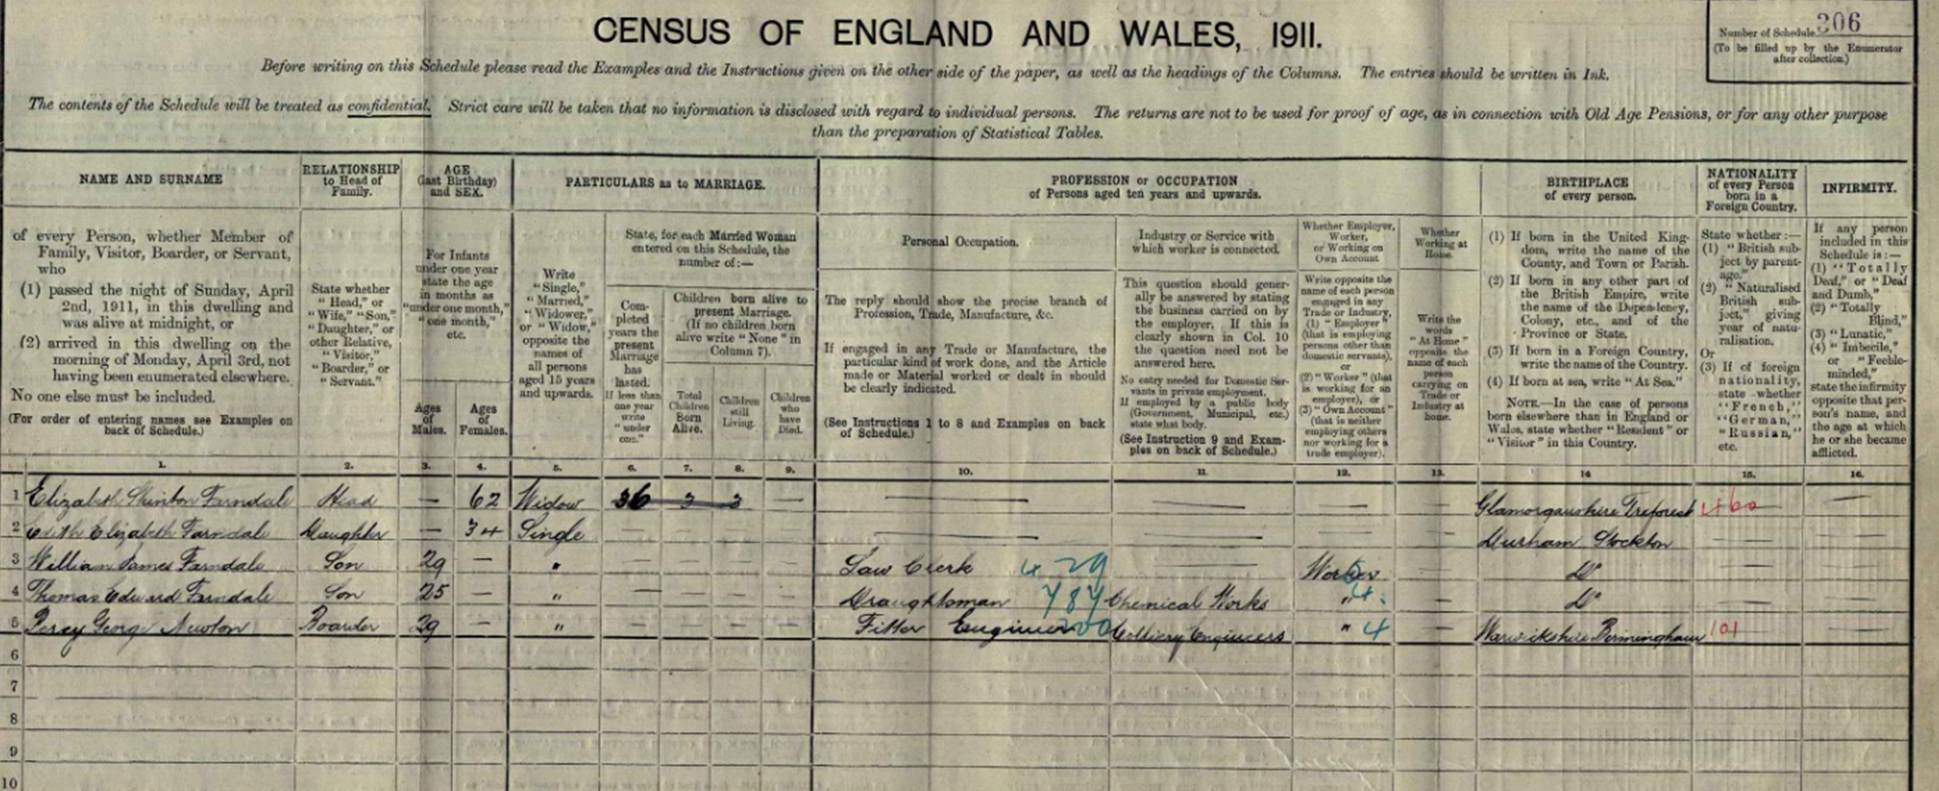 CENSUS OF ENGLAND AND WALES, 1911.
Number of Schedule 306
(To be filled up by the Enumerator
after collection.)
Before writing on this Schedule please read the Examples and the Instructions given on the other side of the paper, as well as the headings of the Columns. The entries should be written in Ink.
The contents of the Schedule will be treated as confidential. Strict care will be taken that no information is disclosed with regard to individual persons. The returns are not to be used for proof of age, as in connection with Old Age Pensions, or for any other purpose
than the preparation of Statistical Tables.
NAME AND SURNAME
of every Person, whether Member of
Family, Visitor, Boarder, or Servant,
who
(1) passed the night of Sunday, April
2nd, 1911, in this dwelling and
was alive at midnight, or
(2) arrived in this dwelling on the
morning of Monday, April 3rd, not
having been enumerated elsewhere.
No one else must be included.
(For order of entering names see Examples on
back of Schedule.)
RELATIONSHIP
to Head of
Family.
State whether
"Head," or
"Wife," "Son,"
"Daughter," or
other Relative,
"Visitor,"
"Boarder," or
"Servant."
AGE
(last Birthday)
and SEX.
For Infants
under one year
state the age
in months as
"under one month,"
"one month,"
etc.
Ages
of
Males.
Ages
of
Females.
PARTICULARS as to MARRIAGE.
Write
"Single,"
"Married,"
"Widower,"
or "Widow,"
opposite the
names of
all persons
aged 15 years
and upwards.
State, for each Married Woman
entered on this Schedule, the
number of:—
Com-
pleted
years the
present
Marriage
has
lasted.
If less than
one year
write
"under
one."
Children born alive to
present Marriage.
(If no children born
alive write "None" in
Column 7).
Total
Children
Born
Alive.
Children
still
Living.
Children
who
have
Died.
PROFESSION or OCCUPATION
of Persons aged ten years and upwards.
Personal Occupation.
The reply should show the precise branch of
Profession, Trade, Manufacture, &c.
If engaged in any Trade or Manufacture, the
particular kind of work done, and the Article
made or Material worked or dealt in should
be clearly indicated.
(See Instructions 1 to 8 and Examples on back
of Schedule.)
Industry or Service with
which worker is connected.
This question should gener-
ally be answered by stating
the business carried on by
the employer. If this is
clearly shown in Col. 10
the question need not be
answered here.
No entry needed for Domestic Ser-
vants in private employment.
If employed by a public body
(Government, Municipal, etc.)
state what body.
(See Instruction 9 and Exam-
ples on back of Schedule.)
Whether Employer,
Worker,
or Working on
Own Account
Write opposite the
name of each person
engaged in any
Trade or Industry,
(1) "Employer"
(that is employing
persons other than
domestic servants),
or
(2) "Worker" (that
is working for an
employer), or
(3) "Own Account"
(that is neither
employing others
nor working for a
trade employer).
Whether
Working at
Home.
Write the
words
"At Home"
opposite the
name of each
person
carrying on
Trade or
Industry at
home.
BIRTHPLACE
of every person.
(1) If born in the United King-
dom, write the name of the
County, and Town or Parish.
(2) If born in any other part of
the British Empire, write
the name of the Dependency,
Colony, etc., and of the
Province or State.
(3) If born in a Foreign Country,
write the name of the Country.
(4) If born at sea, write "At Sea."
NOTE.—In the case of persons
born elsewhere than in England or
Wales, state whether "Resident" or
"Visitor" in this Country.
NATIONALITY
of every Person
born in a
Foreign Country.
State whether:—
(1) "British sub-
ject by parent-
age."
(2) "Naturalised
British sub-
ject," giving
year of natu-
ralisation.
Or
(3) If of foreign
nationality,
state whether
"French,"
"German,"
"Russian,"
etc.
INFIRMITY.
If any person
included in this
Schedule is:—
(1) "Totally
Deaf," or "Deaf
and Dumb,"
(2) "Totally
Blind,"
(3) "Lunatic,"
(4) "Imbecile,"
or "Feeble-
minded,"
state the infirmity
opposite that per-
son's name, and
the age at which
he or she became
afflicted.
1. 2. 3. 4. 5. 6. 7. 8. 9. 10. 11. 12. 13. 14 15. 16.
1 Elizabeth Farndale Head — 62 Widow 36 3 3 — — — — — Glamorganshire Treforest 460 —
2 Edith Elizabeth Farndale Daughter — 34 Single — — — — — — — — Durham Stockton — —
3 William James Farndale Son 29 — " — — — — Law Clerk 4 29 — Worker — Do — —
4 Thomas Edward Farndale Son 25 — " — — — — Draughtsman 787 Chemical Works " 4. — Do — —
5 Percy George Newton Boarder 29 — " — — — — Fitter Engineer 200 Colliery Engineers " 4 — Warwikshire Birmingham 101 —
6
7
8
9
10